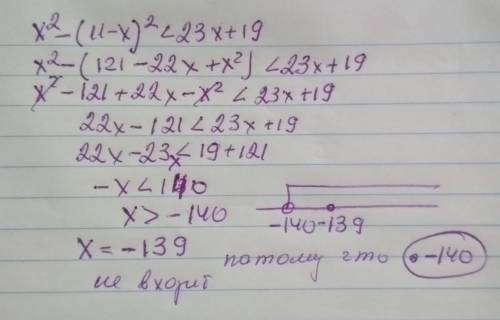 x²-(11-x)²<23x+19
x²-(121-22x+x²)<23x+19
x²-121+22x-x²<23x+19
22x-121<23x+19
22x-23x<19+121
-x<140
x>-140
-140 -139
x=-139
не входит потому что •-140